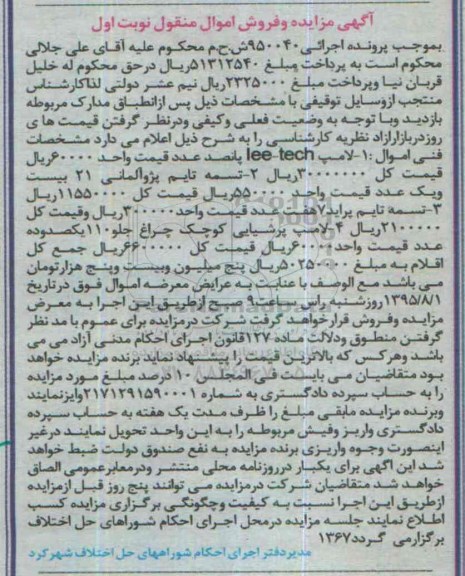 آگهی مزایده وفروش اموال منقول نوبت اول
بموجب پرونده اجرائی۹۵۰۰۴۰ش.ح.م محکوم علیه آقای علی جلالی
محکوم است به پرداخت مبلغ ۵۱۳۱۲۵۴۰ریال درحق محکوم له خلیل
قربان نیا وپرداخت مبلغ ۲۳۲۵۰۰۰ریال نیم عشر دولتی لذاکارشناس
منتجب ازوسایل توقیفی با مشخصات ذیل پس ازانطباق مدارک مربوطه
بازدید وبا توجه به وضعیت فعلی وکیفی ودرنظر گرفتن قیمت ها ی
روزدربازارازاد نظریه کارشناسی را به شرح ذیل اعلام می دارد مشخصات
فنی اموال :۱-لامپ lee-tech پانصد عدد قیمت واحد ۶۰۰۰۰ریال
قیمت کل ۳۰۰۰۰۰۰۰ریال ۲-تسمه تایم پژوآلمانی ۲۱ بیست
ویک عدد قیمت واحد ۵۵۰۰۰۰ریال قیمت کل ۱۱۵۵۰۰۰۰ریال
۳-تسمه تایم پراید۷ عدد قیمت واحد۳۰۰۰۰۰ریال وقیمت کل
۲۱۰۰۰۰۰ریال ۴-لامپ پرشیایی کوچک چراغ جلو۱۱۰یکصدوده
عدد قیمت واحد ۶۰۰۰۰ریال قیمت کل ۶۶۰۰۰۰۰ریال جمع کل
اقلام به مبلغ ۵۰۲۵۰۰۰۰ریال پنج میلیون وبیست وپنج هزارتومان
می باشد مع الوصف با عنایت به عرایض معرضه اموال فوق درتاریخ
۱۳۹۵/۸/۱روزشنبه راس ساعت۹ صبح ازطریق این اجرا به معرض
مزایده وفروش قرارخواهد گرفت شرکت درمزایده برای عموم با مد نظر
گرفتن منطوق ودلالت ماده ۱۲۷قانون اجرای احکام مدنی آزاد می می
باشد وهرکس که بالاترین قیمت را پیشنهاد نماید برنده مزایده خواهد
بود متقاضیان می بایست فی المجلس ۱۰ درصد مبلغ مورد مزایده
را به حساب سپرده دادگستری به شماره ۲۱۷۱۲۹۱۵۹۰۰۰۱وایزنمایند
وبرنده مزایده مابقی مبلغ را ظرف مدت یک هفته به حساب سپرده
دادگستری واریز وفیش مربوطه را به این واحد تحویل نمایند درغیر
اینصورت وجوه واریزی برنده مزایده به نفع صندوق دولت ضبط خواهد
شد این آگهی برای یکبار درروزنامه محلی منتشر ودرمعابرعمومی الصاق
خواهد شد متقاضیان شرکت درمزایده می توانند پنج روز قبل ازمزایده
ازطریق این اجرا نسبت به کیفیت وچگونگی برگزاری مزایده کسب
اطلاع نمایند جلسه مزایده درمحل اجرای احکام شوراهای حل اختلاف
برگزارمی گردد۱۳۶۷
مدیردفتر اجرای احکام شوراههای حل اختلاف شهرکرد